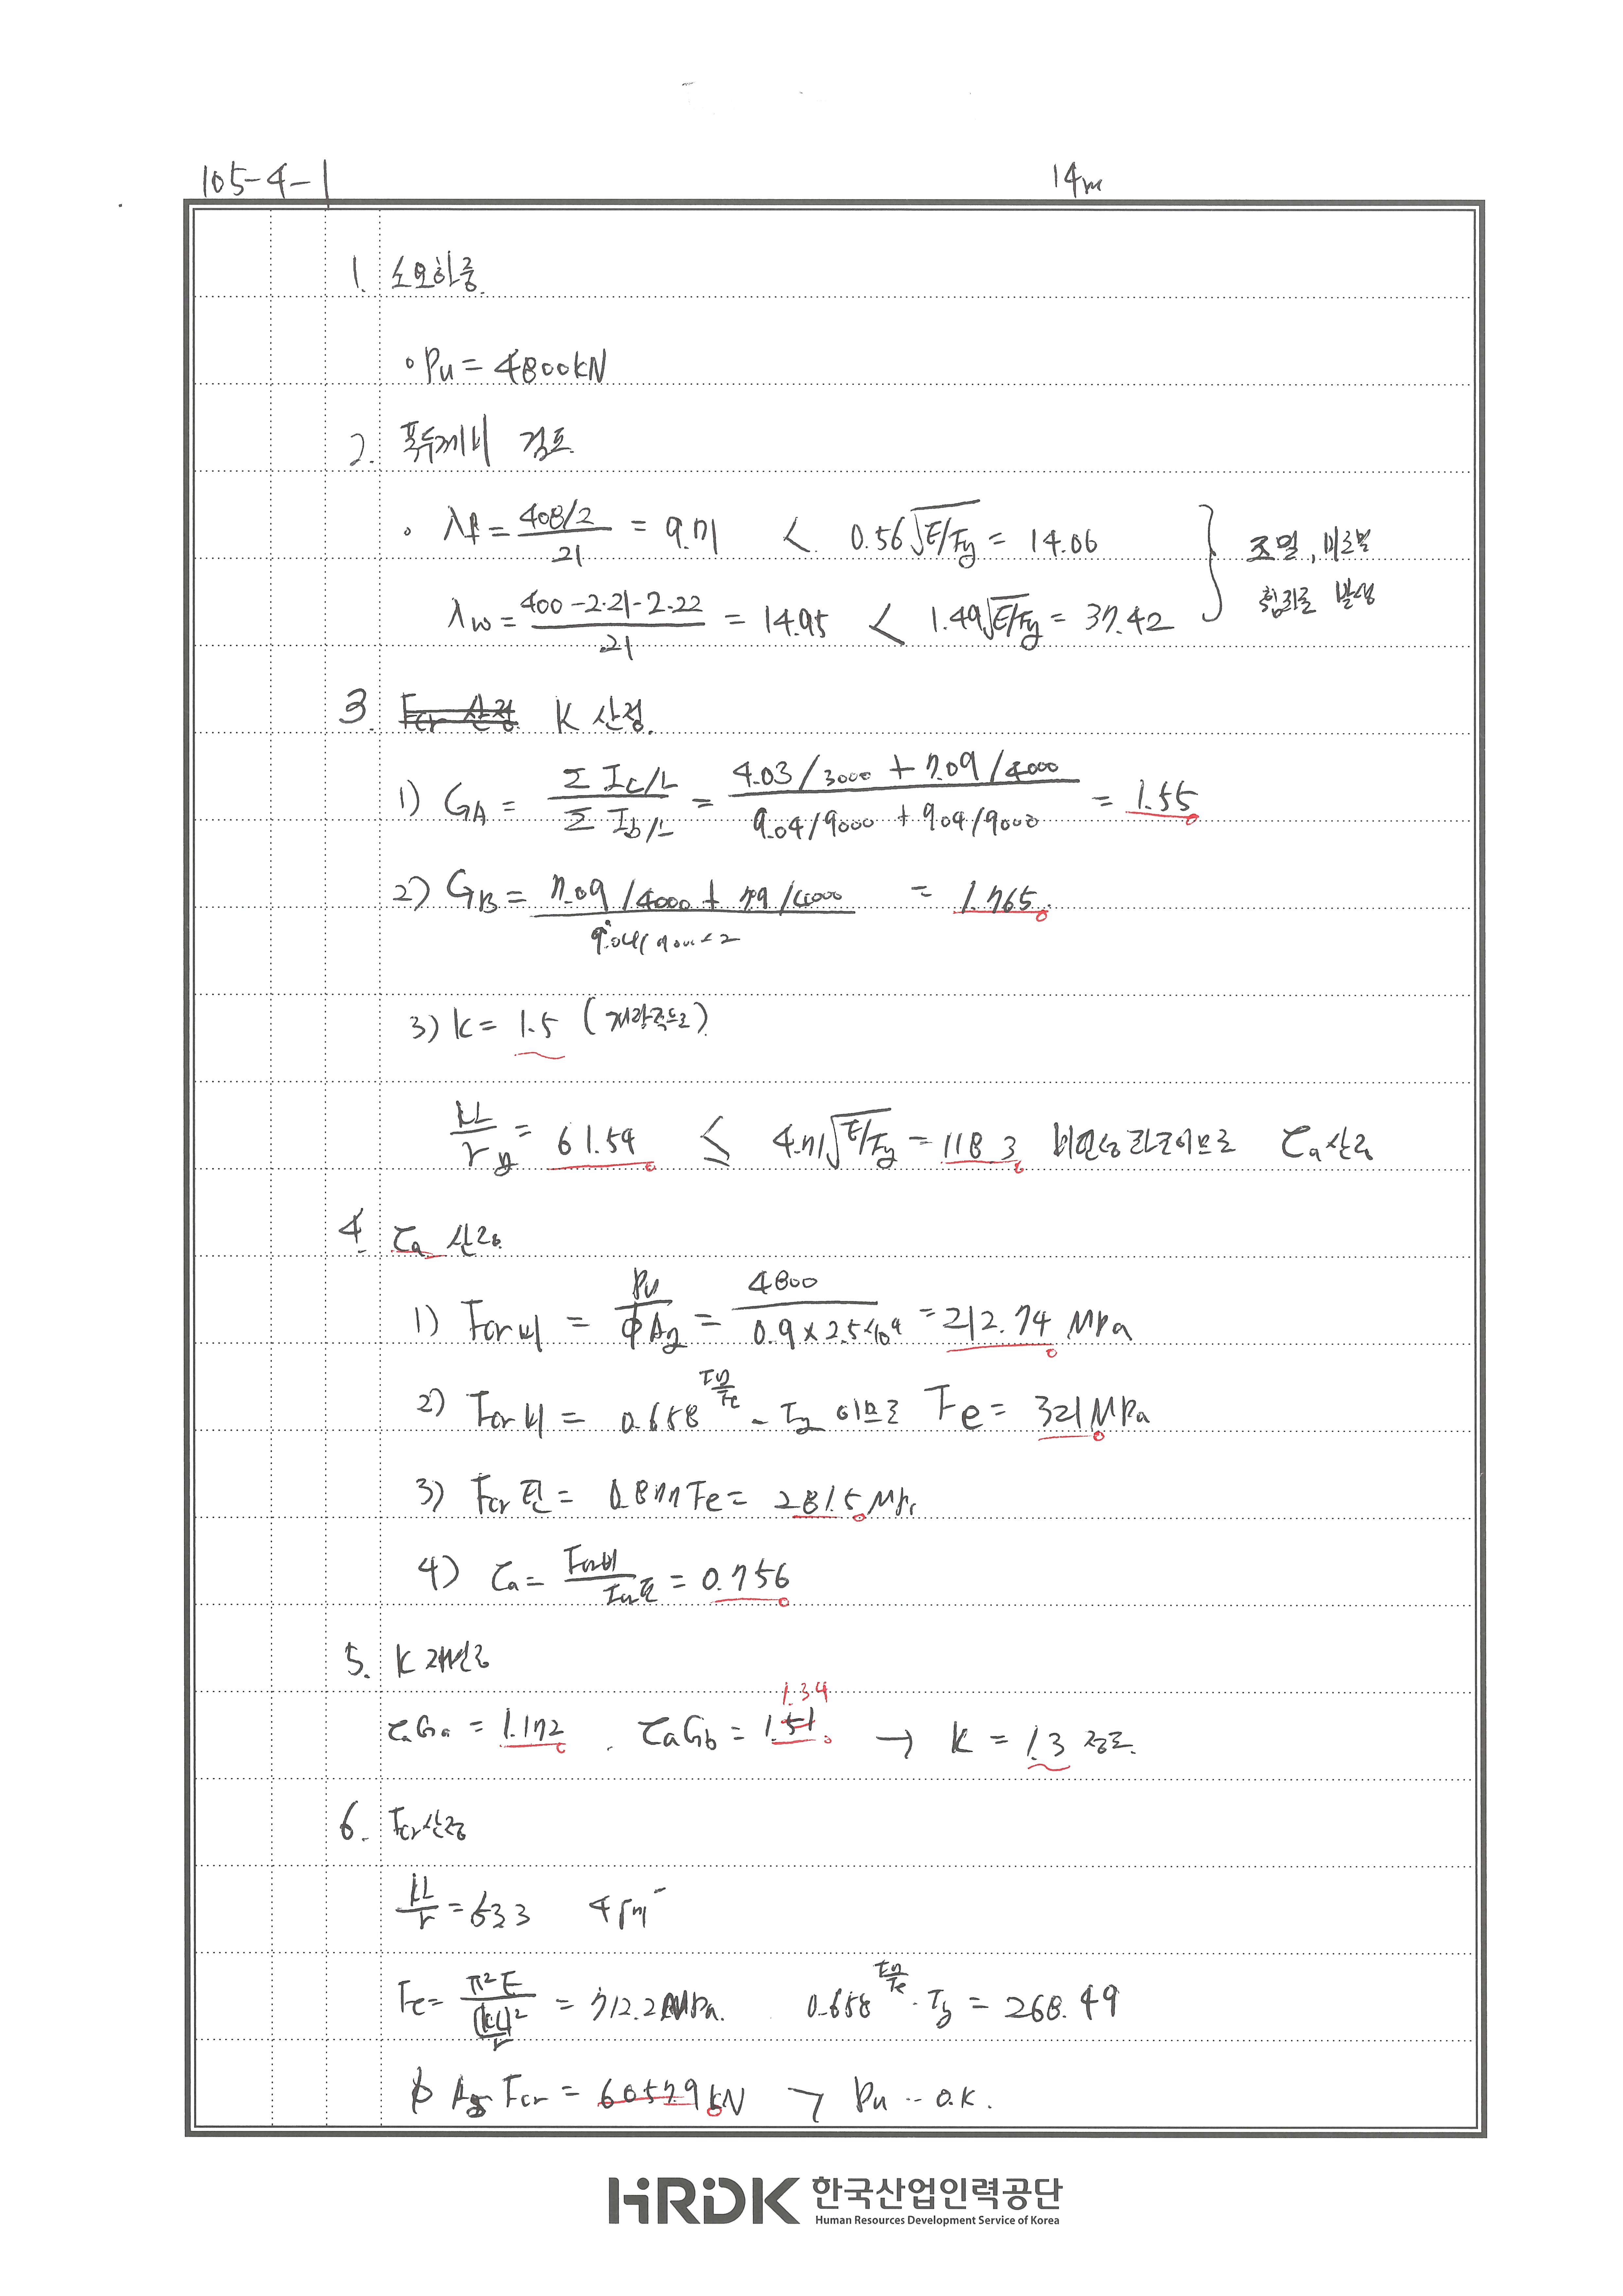 105-4-1
14m
1. 소요하중.
∘ Pu = 4800kN
2. 폭두께비 검토.
∘ λf = (408/2)/21 = 9.71 < 0.56√(E/Fy) = 14.06
λw = (400-2·21-2·22)/21 = 14.95 < 1.49√(E/Fy) = 37.42 } 조밀, 비조밀
휨좌굴 발생
3. Fcr 산정 K 산정.
1) GA = (Σ Ic/L)/(Σ Ib/L) = (4.03/3000 + 7.09/4000)/(9.04/9000 + 9.04/9000) = 1.55
2) GB = (7.09/4000 + 7.09/4000)/(9.04/9000×2) = 1.765.
3) K = 1.5 (개략적으로)
KL/ry = 61.59 ≤ 4.71√(E/Fy) = 118.3 비탄성 좌굴이므로 τa 산정
4. τa 산정.
1) Fcr비 = Pu/(φAg) = 4800/(0.9×2.5×10⁴) = 212.74 MPa
2) Fcr비 = 0.658^(Fy/Fe) - Fy 이므로 Fe = 321 MPa
3) Fcr탄 = 0.877Fe = 281.5 MPa
4) τa = Fcr비/Fcr탄 = 0.756
5. K 재산정
1.34
τaGa = 1.172 . τaGb = 1.51. → K = 1.3 정도.
6. Fcr산정
KL/r = 53.3 4.71√
Fe = π²E/(KL/r)² = 712.2MPa. 0.658^(Fy/Fe) · Fy = 268.49
φ Ag Fcr = 6057.9 kN > Pu -- O.K.
HRDK 한국산업인력공단
Human Resources Development Service of Korea